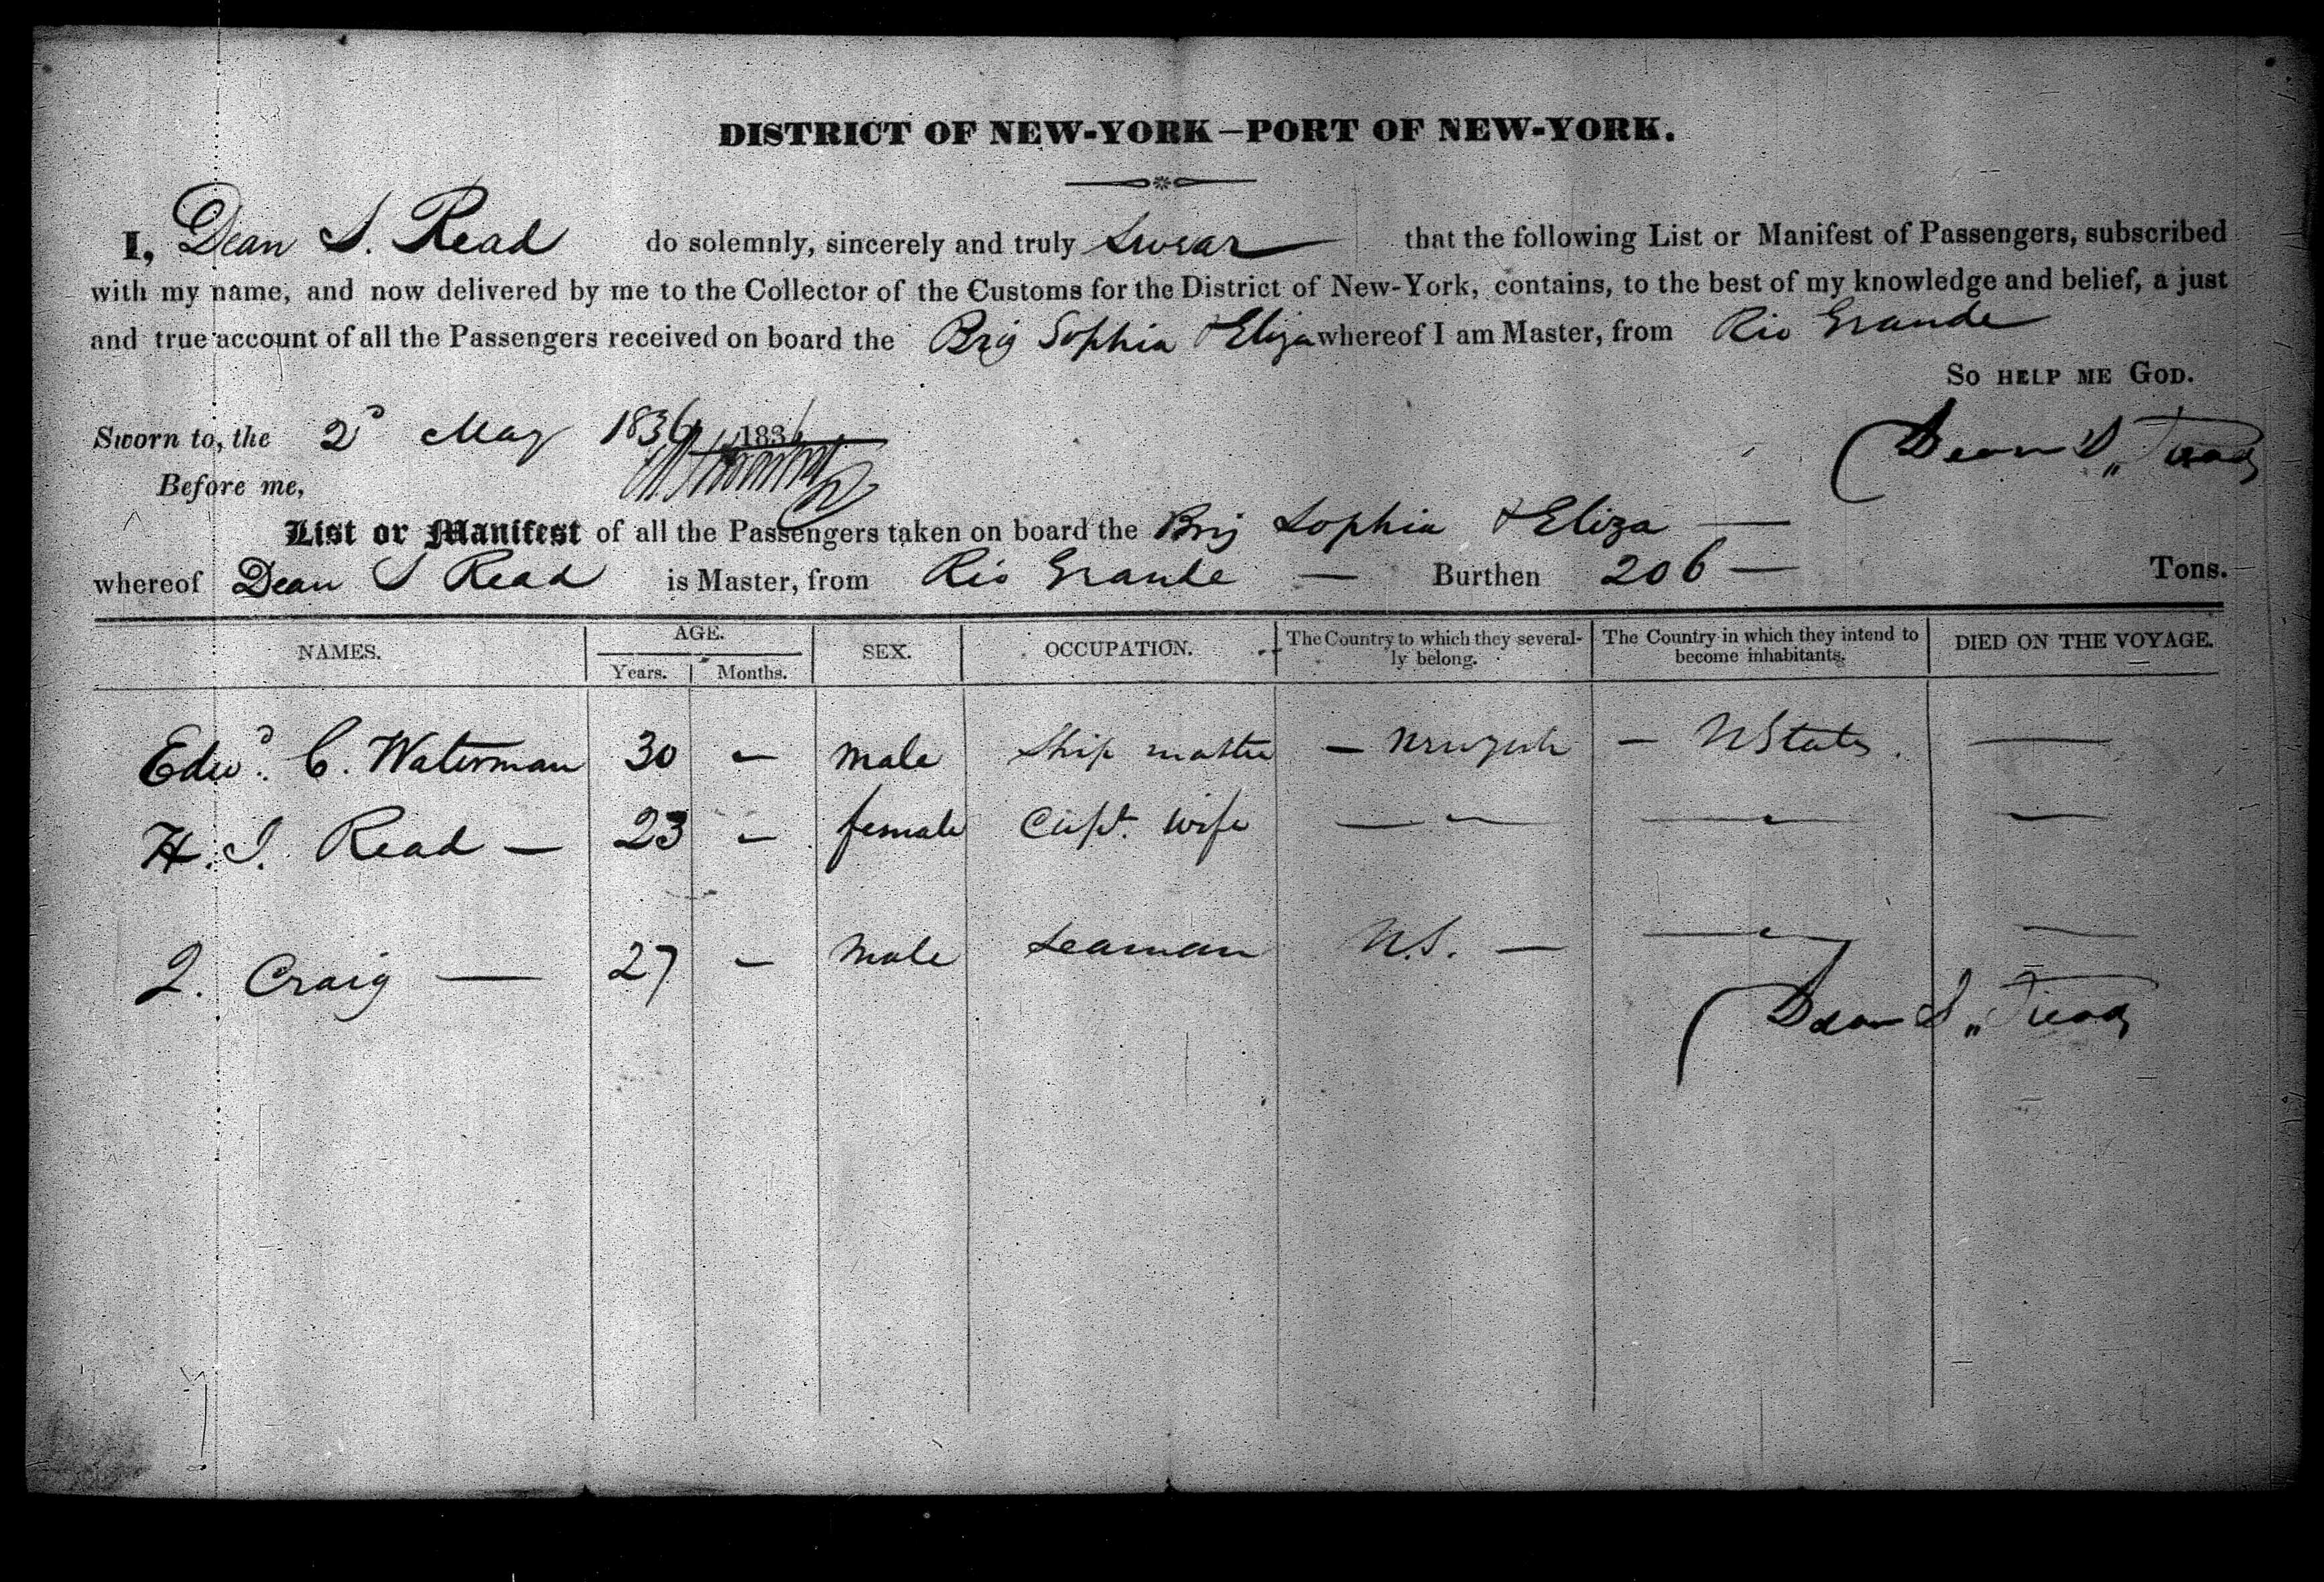 DISTRICT OF NEW-YORK—PORT OF NEW-YORK.
I, Dean S. Read do solemnly, sincerely and truly Swear that the following List or Manifest of Passengers, subscribed
with my name, and now delivered by me to the Collector of the Customs for the District of New-York, contains, to the best of my knowledge and belief, a just
and true account of all the Passengers received on board the Brig Sophia & Eliza whereof I am Master, from Rio Grande
So HELP ME GOD.
Sworn to, the 2d May 1836 1836
Dean S. Read
Before me,
List or Manifest of all the Passengers taken on board the Brig Sophia & Eliza —
whereof Dean S Read is Master, from Rio Grande — Burthen 206 — Tons.
NAMES. AGE. SEX. OCCUPATION. The Country to which they several- The Country in which they intend to DIED ON THE VOYAGE.
Years. Months. ly belong. become inhabitants.
Edwd. C. Waterman 30 – male Ship master – – U States. —
H. I. Read — 23 – female Capt. wife — — — —
Craig — 27 – male Seaman U.S. — — —
Dean S. Read